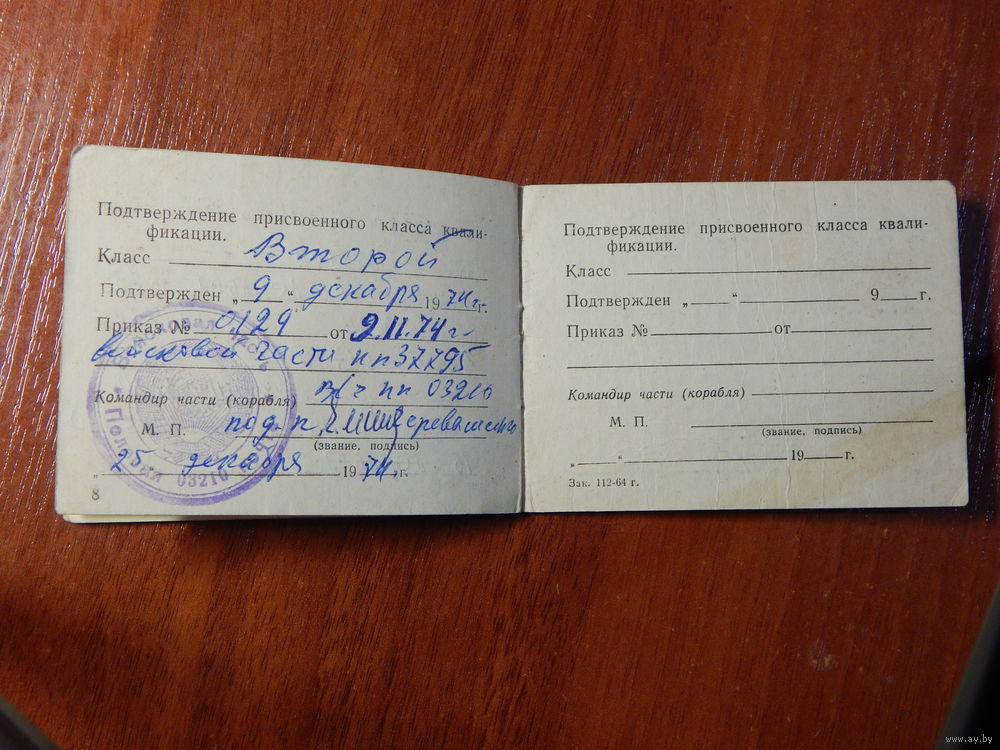 Подтверждение присвоенного класса квали-
фикации.
Класс Второй
Подтвержден „ 9 “ декабря 1974 г.
Приказ № 0129 от 9.11.74 г
войсковой части пп 37795
Командир части (корабля) в/ч пп 03210
М. П. под. п-к
(звание, подпись)
„ 25 декабря 1974 г.
03210
8
Подтверждение присвоенного класса квали-
фикации.
Класс
Подтвержден „ “ 9 г.
Приказ № от
Командир части (корабля)
М. П.
(звание, подпись)
„ “ 19 г.
Зак. 112-64 г.
www.ay.by